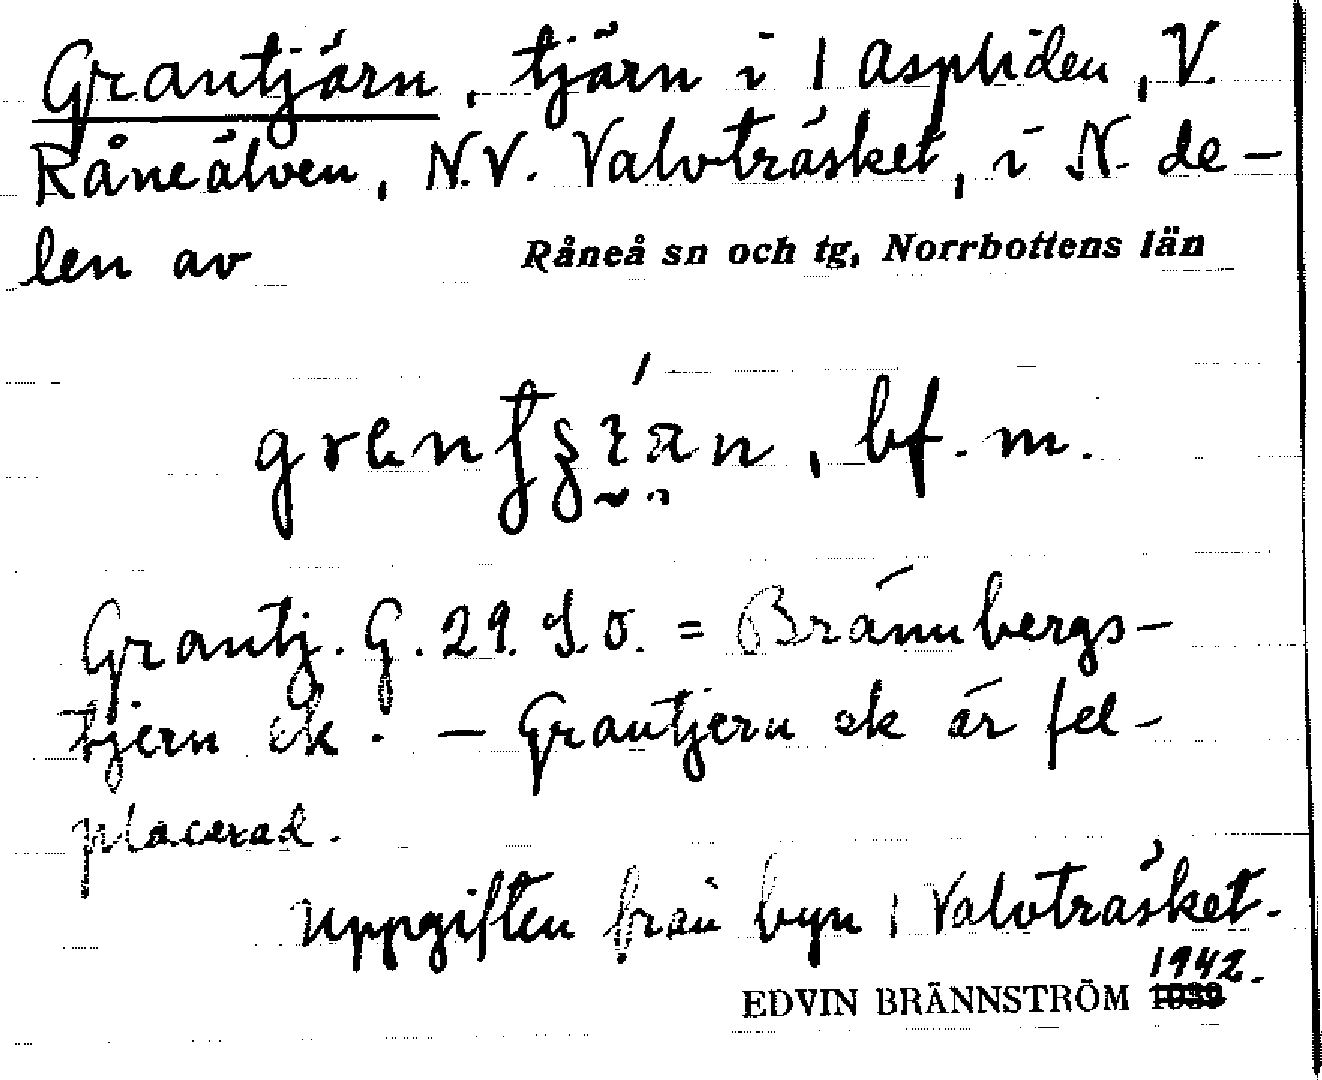 Grantjärn, tjärn i 1 Aspliden, V.
Råneälven, N.V. Valvträsket, i N. de-
len av Råneå sn och tg, Norrbottens län
bf. m.
Grantj. G. 29. S.O. = Brännbergs-
tjern ek. — Grantjern ek är fel-
placerad.
Uppgiften från byn 1 Valvträsket.
1942.
EDVIN BRÄNNSTRÖM 1939